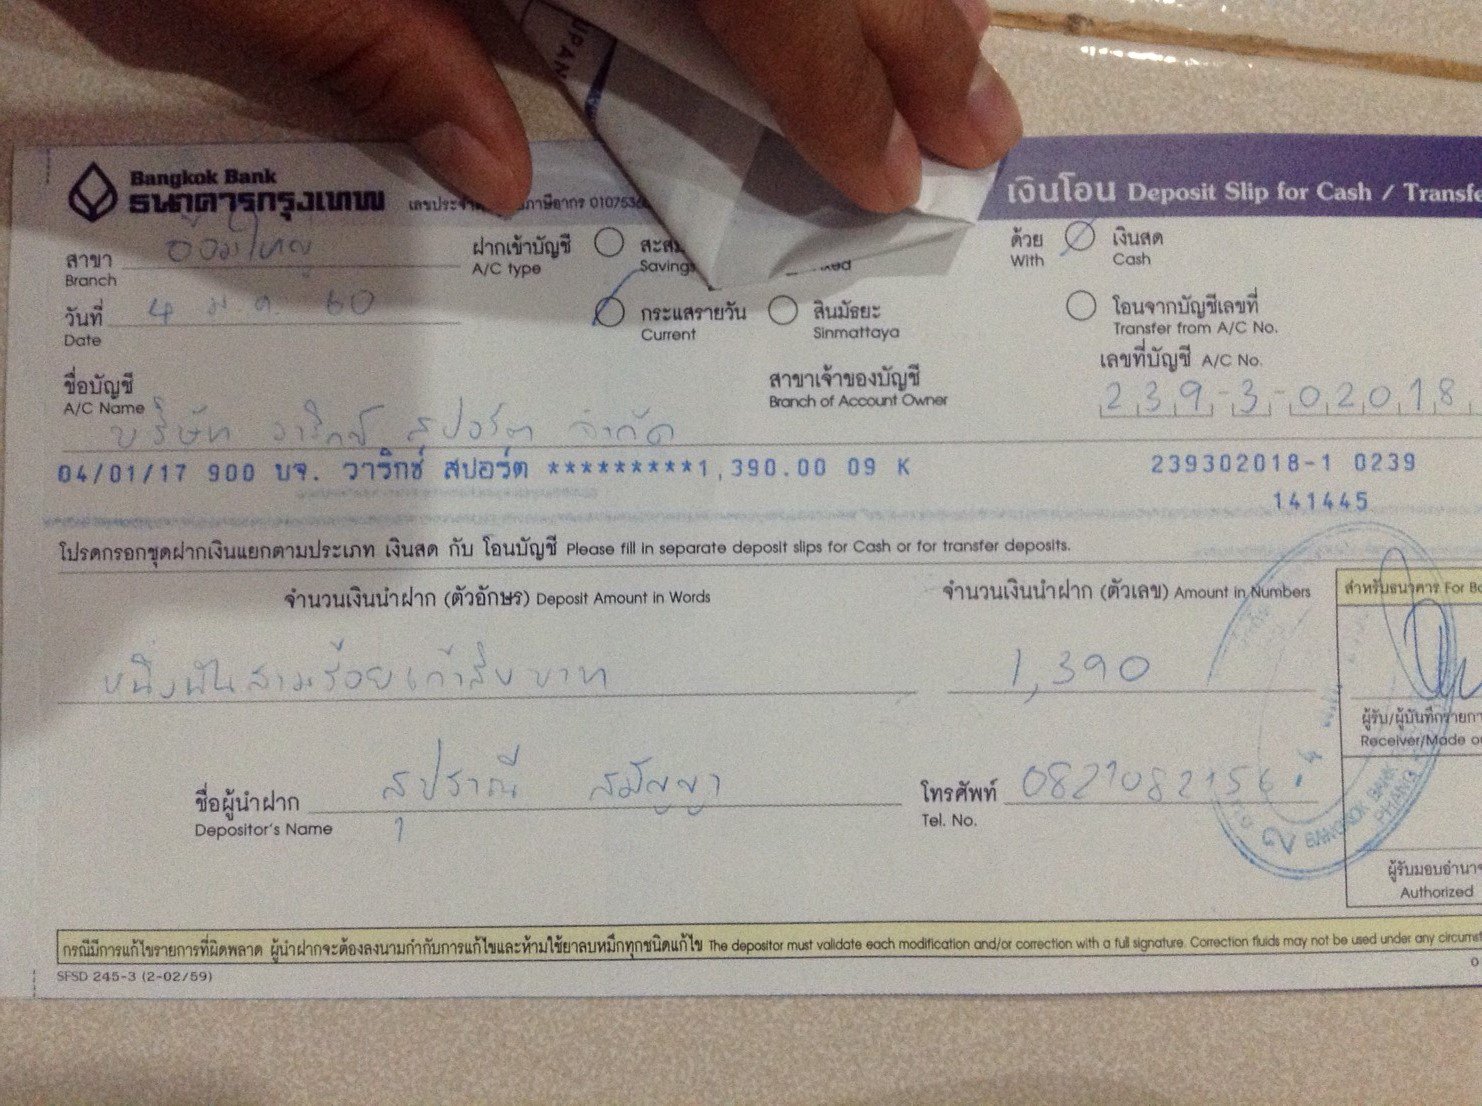 UPAN
Bangkok Bank
ธนาคารกรุงเทพ
เงินโอน Deposit Slip for Cash / Transfe
สาขา อ้อมใหญ่
Branch
ฝากเข้าบัญชี
A/C type
Savings
ด้วย เงินสด
With Cash
วันที่ 4 ม.ค. 60
Date
กระแสรายวัน
Current
สินมัธยะ
Sinmattaya
โอนจากบัญชีเลขที่
Transfer from A/C No.
ชื่อบัญชี
A/C Name
บริษัท วาริกซ์ สปอร์ต จำกัด
สาขาเจ้าของบัญชี
Branch of Account Owner
เลขที่บัญชี A/C No.
239-3-02018
04/01/17 900 บจ. วาริกซ์ สปอร์ต *********1,390.00 09 K 239302018-1 0239
141445
โปรดกรอกชุดฝากเงินแยกตามประเภท เงินสด กับ โอนบัญชี Please fill in separate deposit slips for Cash or for transfer deposits.
จำนวนเงินนำฝาก (ตัวอักษร) Deposit Amount in Words
จำนวนเงินนำฝาก (ตัวเลข) Amount in Numbers
สำหรับธนาคาร For Ba
หนึ่งพันสามร้อยเก้าสิบบาท
1,390
ผู้รับ/ผู้บันทึกรายกา
Receiver/Made o
ชื่อผู้นำฝาก สุปราณี สมัญญา
Depositor's Name
โทรศัพท์ 0821082156
Tel. No.
BANGKOK BANK
ผู้รับมอบอำนา
Authorized
กรณีมีการแก้ไขรายการที่ผิดพลาด ผู้นำฝากจะต้องลงนามกำกับการแก้ไขและห้ามใช้ยาลบหมึกทุกชนิดแก้ไข The depositor must validate each modification and/or correction with a full signature. Correction fluids may not be used under any circumst
SFSD 245-3 (2-02/59)